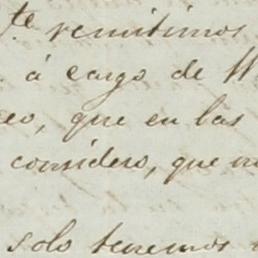 te remitimos
á cargo de
que en las
considero, que
solo tenemos